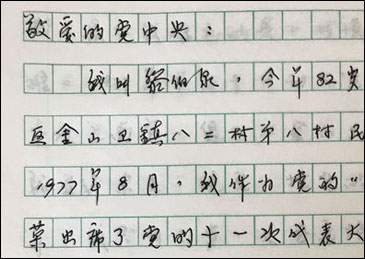 敬爱的党中央：
我叫黎伯泉，今年82岁
区金山卫镇八二村第八村民
1977年8月，我作为党的"
菜出席了党的十一次代表大